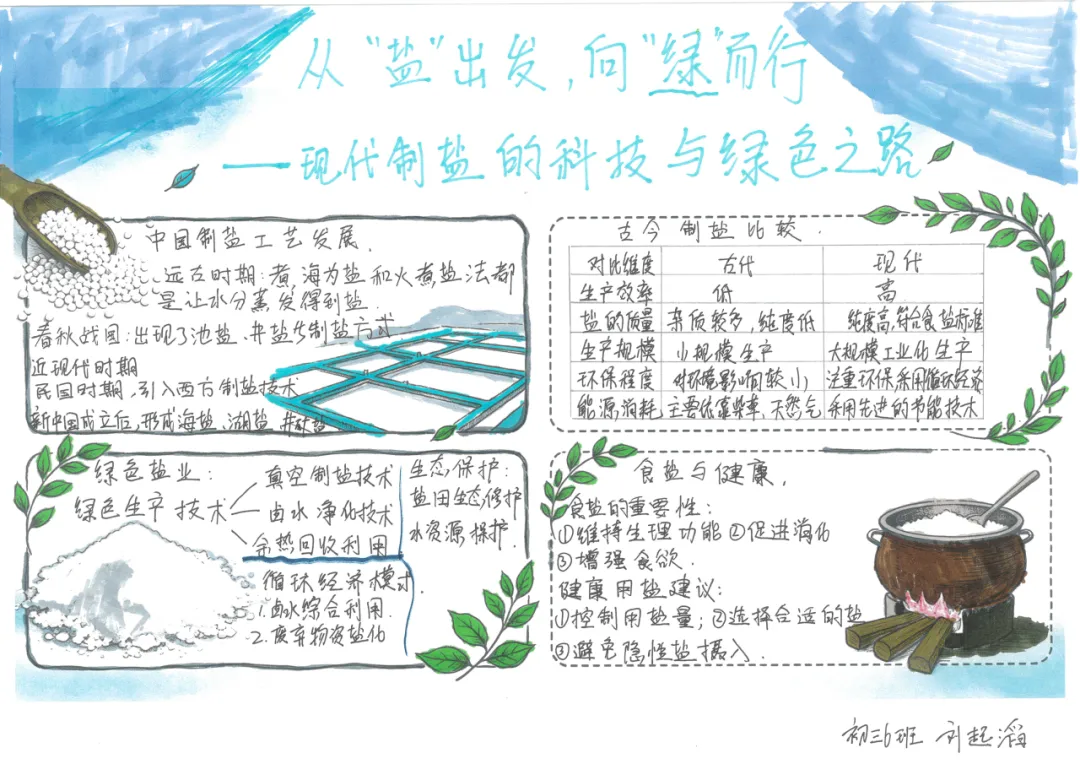 从"盐"出发，向"绿"而行
——现代制盐的科技与绿色之路
中国制盐工艺发展.
远古时期：煮海为盐和火煮盐法都
是让水分蒸发得到盐.
春秋战国：出现了池盐、井盐等制盐方式
近现代时期
民国时期，引入西方制盐技术
新中国成立后，形成海盐、湖盐、井矿盐
古今制盐比较.
对比维度 古代 现代
生产效率 低 高
盐的质量 杂质较多，纯度低 纯度高，符合食盐标准
生产规模 小规模生产 大规模工业化生产
环保程度 对环境影响较小 注重环保采用循环经济
能源消耗 主要依靠柴草、天然气 采用先进的节能技术
绿色盐业：
绿色生产技术
真空制盐技术
卤水净化技术
余热回收利用
循环经济模式.
1.卤水综合利用.
2.废弃物资盐化
生态保护：
盐田生态修护
水资源保护.
食盐与健康，
食盐的重要性：
①维持生理功能②促进消化
③增强食欲.
健康用盐建议：
①控制用盐量；②选择合适的盐
③避免隐性盐摄入.
初三6班 刘起滔